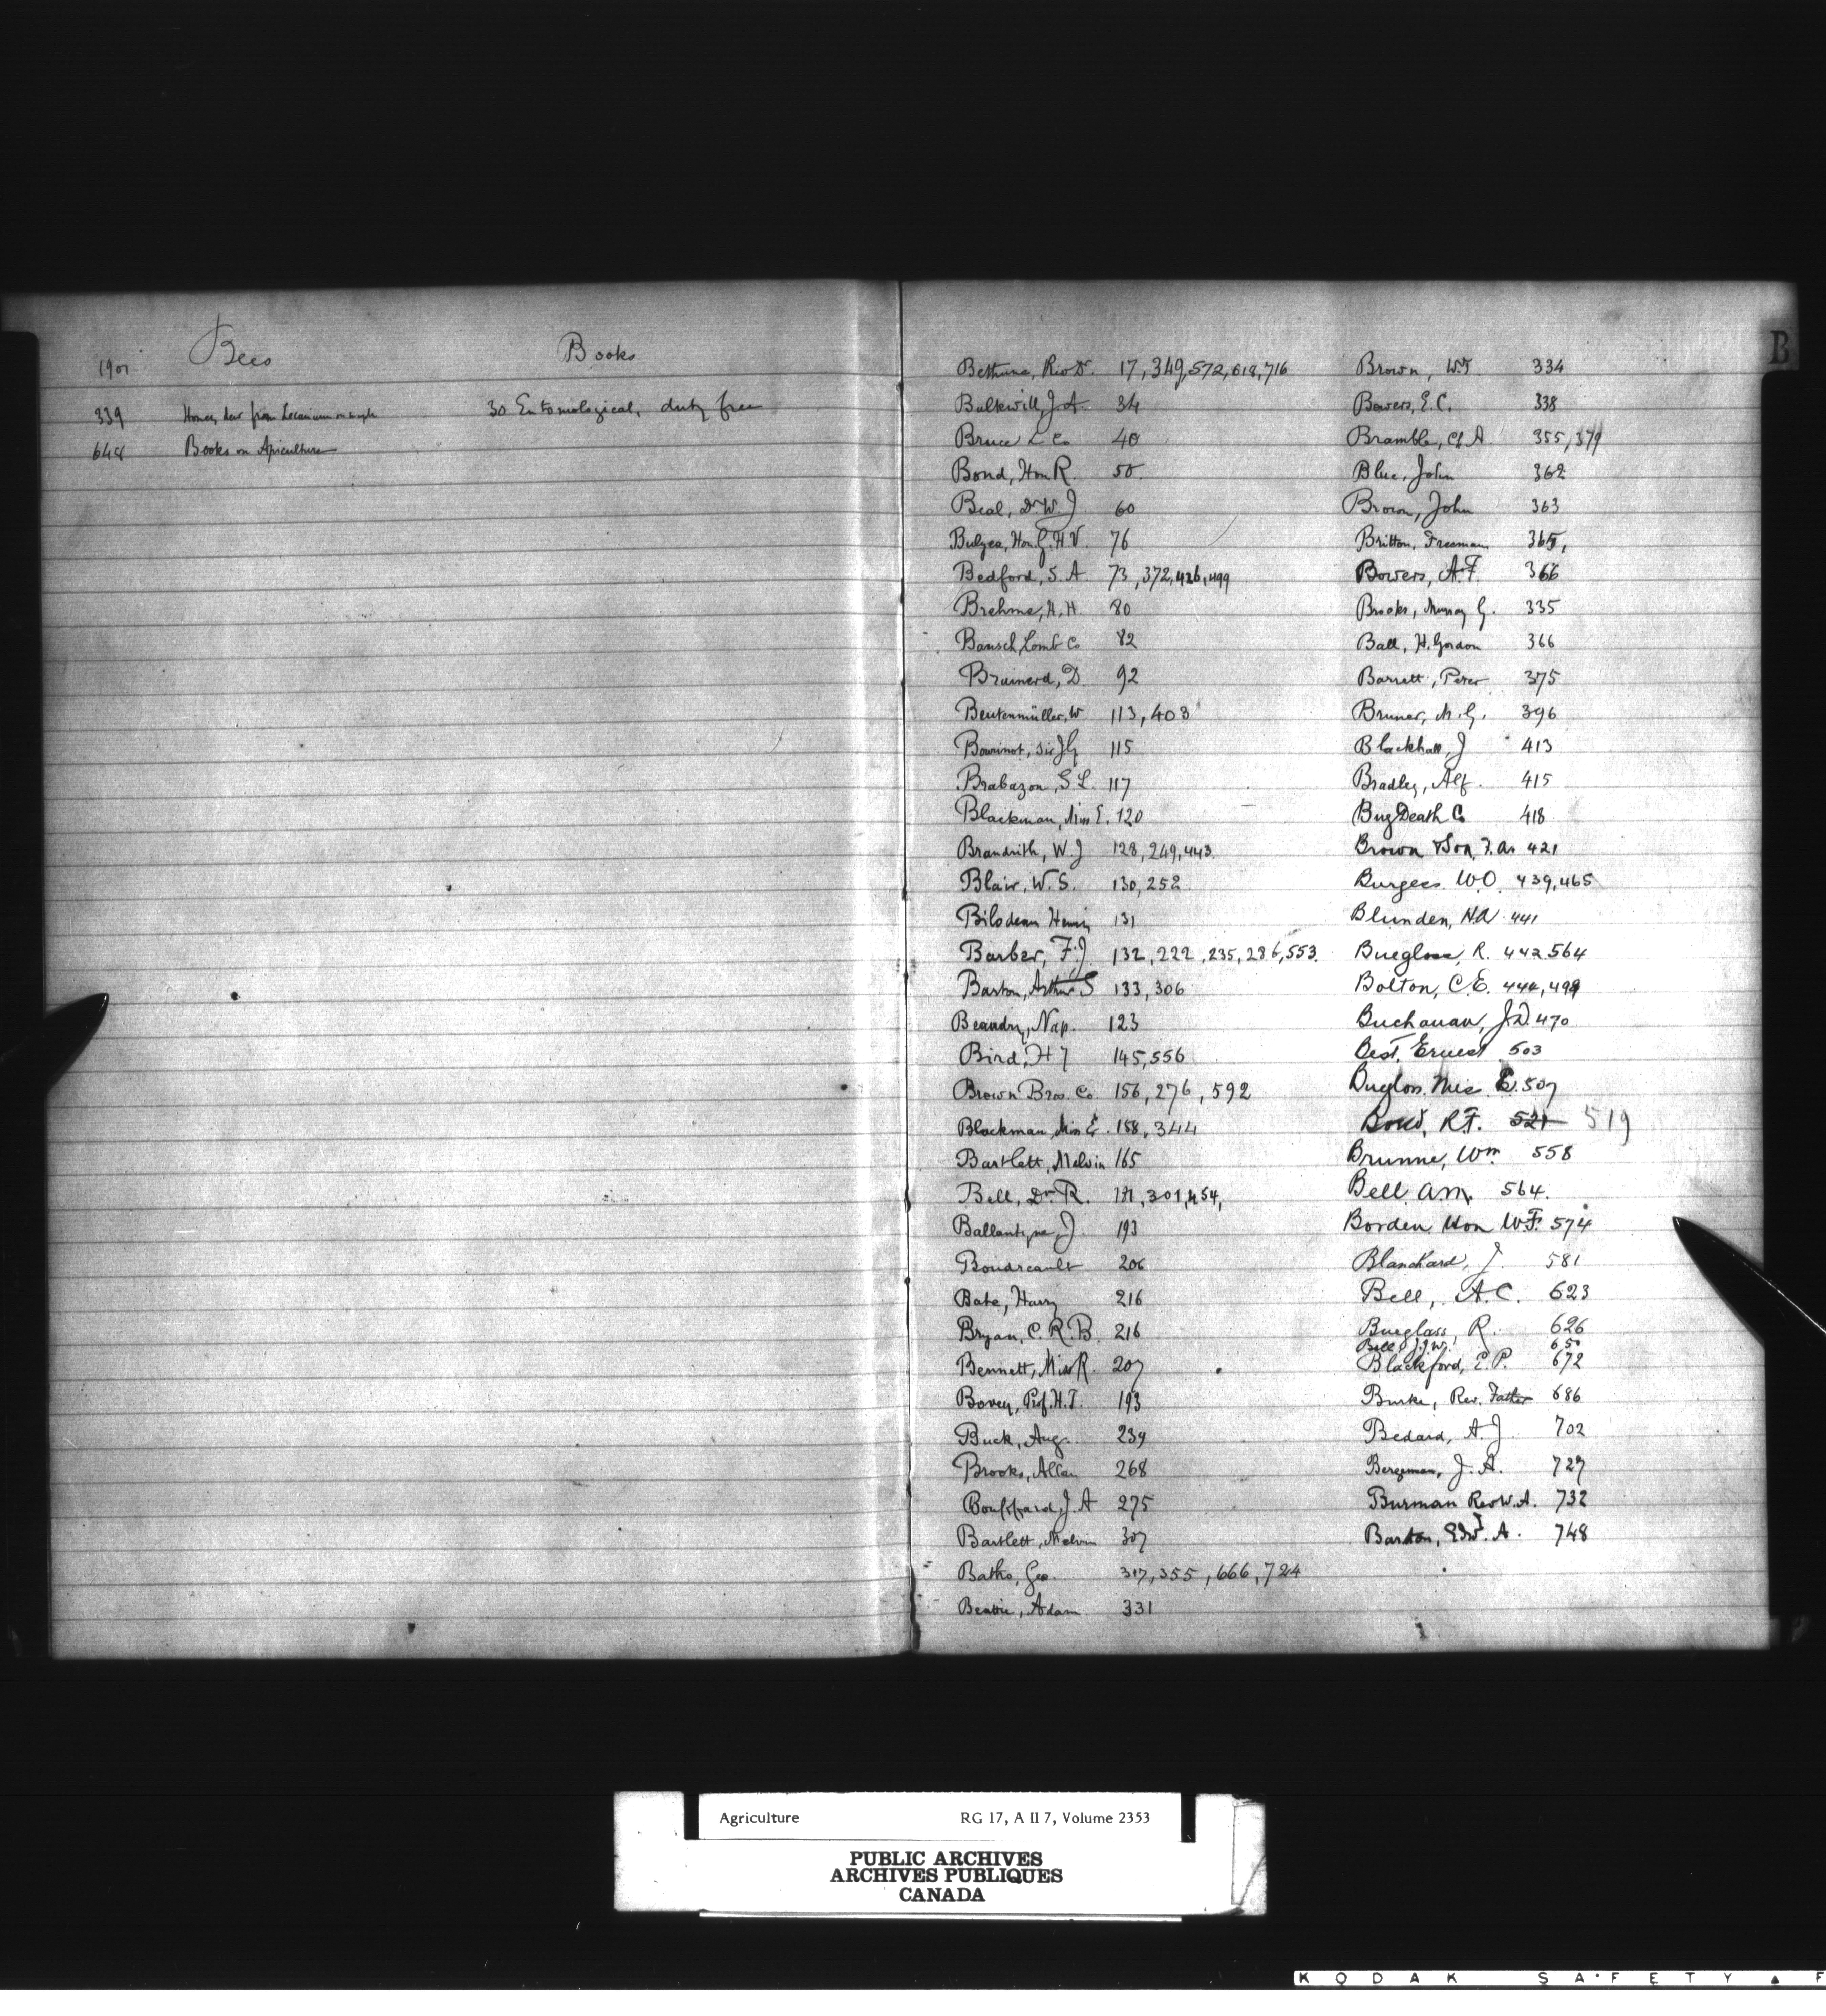 Bees
Books
1901
339 Honey dew from Lecanium on maple
30 Entomological, duty free
648 Books on Apiculture
B
Bethune, Rev Dr. 17, 349, 572, 618, 716
Balkwill, J A. 34
Bruce & Co 40
Bond, Hon R. 50.
Beal, Dr W. J 60
Bulyea, Hon G. H V. 76
Bedford, S. A 73, 372, 426, 499
Brehme, H. H. 80
Bausch, Lomb Co 82
Brainerd, D. 92
Beutenmüller, W 113, 403
Bourinot, Sir J G 115
Brabazon, S L. 117
Blackman, Miss E. 120
Brandrith, W J 128, 249, 443.
Blair, W. S. 130, 252
Bilodeau Henri 131
Barber, F. J. 132, 222, 235, 286, 553.
Barton, Arthur S 133, 306
Beaudry, Nap. 123
Bird, H 7 145, 556
Brown Bros. Co. 156, 276, 592
Blackman, Miss E. 158, 344
Bartlett, Melvin 165
Bell, Dr R. 171, 301, 454,
Ballantyne, J. 193
Boudreault 206
Bate, Harry 216
Bryan, C. R. B. 216
Bennett, Miss R. 207
Bovey, Prof. H. T. 193
Buck, Aug. 239
Brooks, Allan 268
Bouffard, J. A 275
Bartlett, Melvin 307
Baths, Geo. 317, 355, 666, 724
Beattie, Adam 331
Brown, W. T 334
Bowers, E. C. 338
Bramble, A. 355, 379
Blue, John 362
Brown, John 363
Britton, Freeman, 365,
Bowers, A. F. 366
Brooks, Murray G. 335
Ball, H. Gordon 366
Barrett, Peter 375
Bruner, M. G. 396
Blackhall, J 413
Bradley, Alf. 415
Bug Death Co 418
Brown & Son, 421
Burgess. W. O. 439, 465
Blunden, H. A 441
Bueglass, R. 442 564
Bolton, C. E. 444, 499
Buchanan, J. D. 470
Best, Ernest 503
E. 507
R. F. 521 519
Brunne, Wm 558
Bell, A. M. 564.
Borden Hon W. F. 574
Blanchard, J. 581
Bell, A. C. 623
Bueglass, R. 626
Bell, J. W. 650
Blackford, E. P. 672
Burke, Rev. Father 686
Bedard, A. J. 702
Bergeman, J. A. 727
Burman Rev W. A. 732
Barton, Edw. A. 748
Agriculture RG 17, A II 7, Volume 2353
PUBLIC ARCHIVES
ARCHIVES PUBLIQUES
CANADA
KODAK SAFETY F